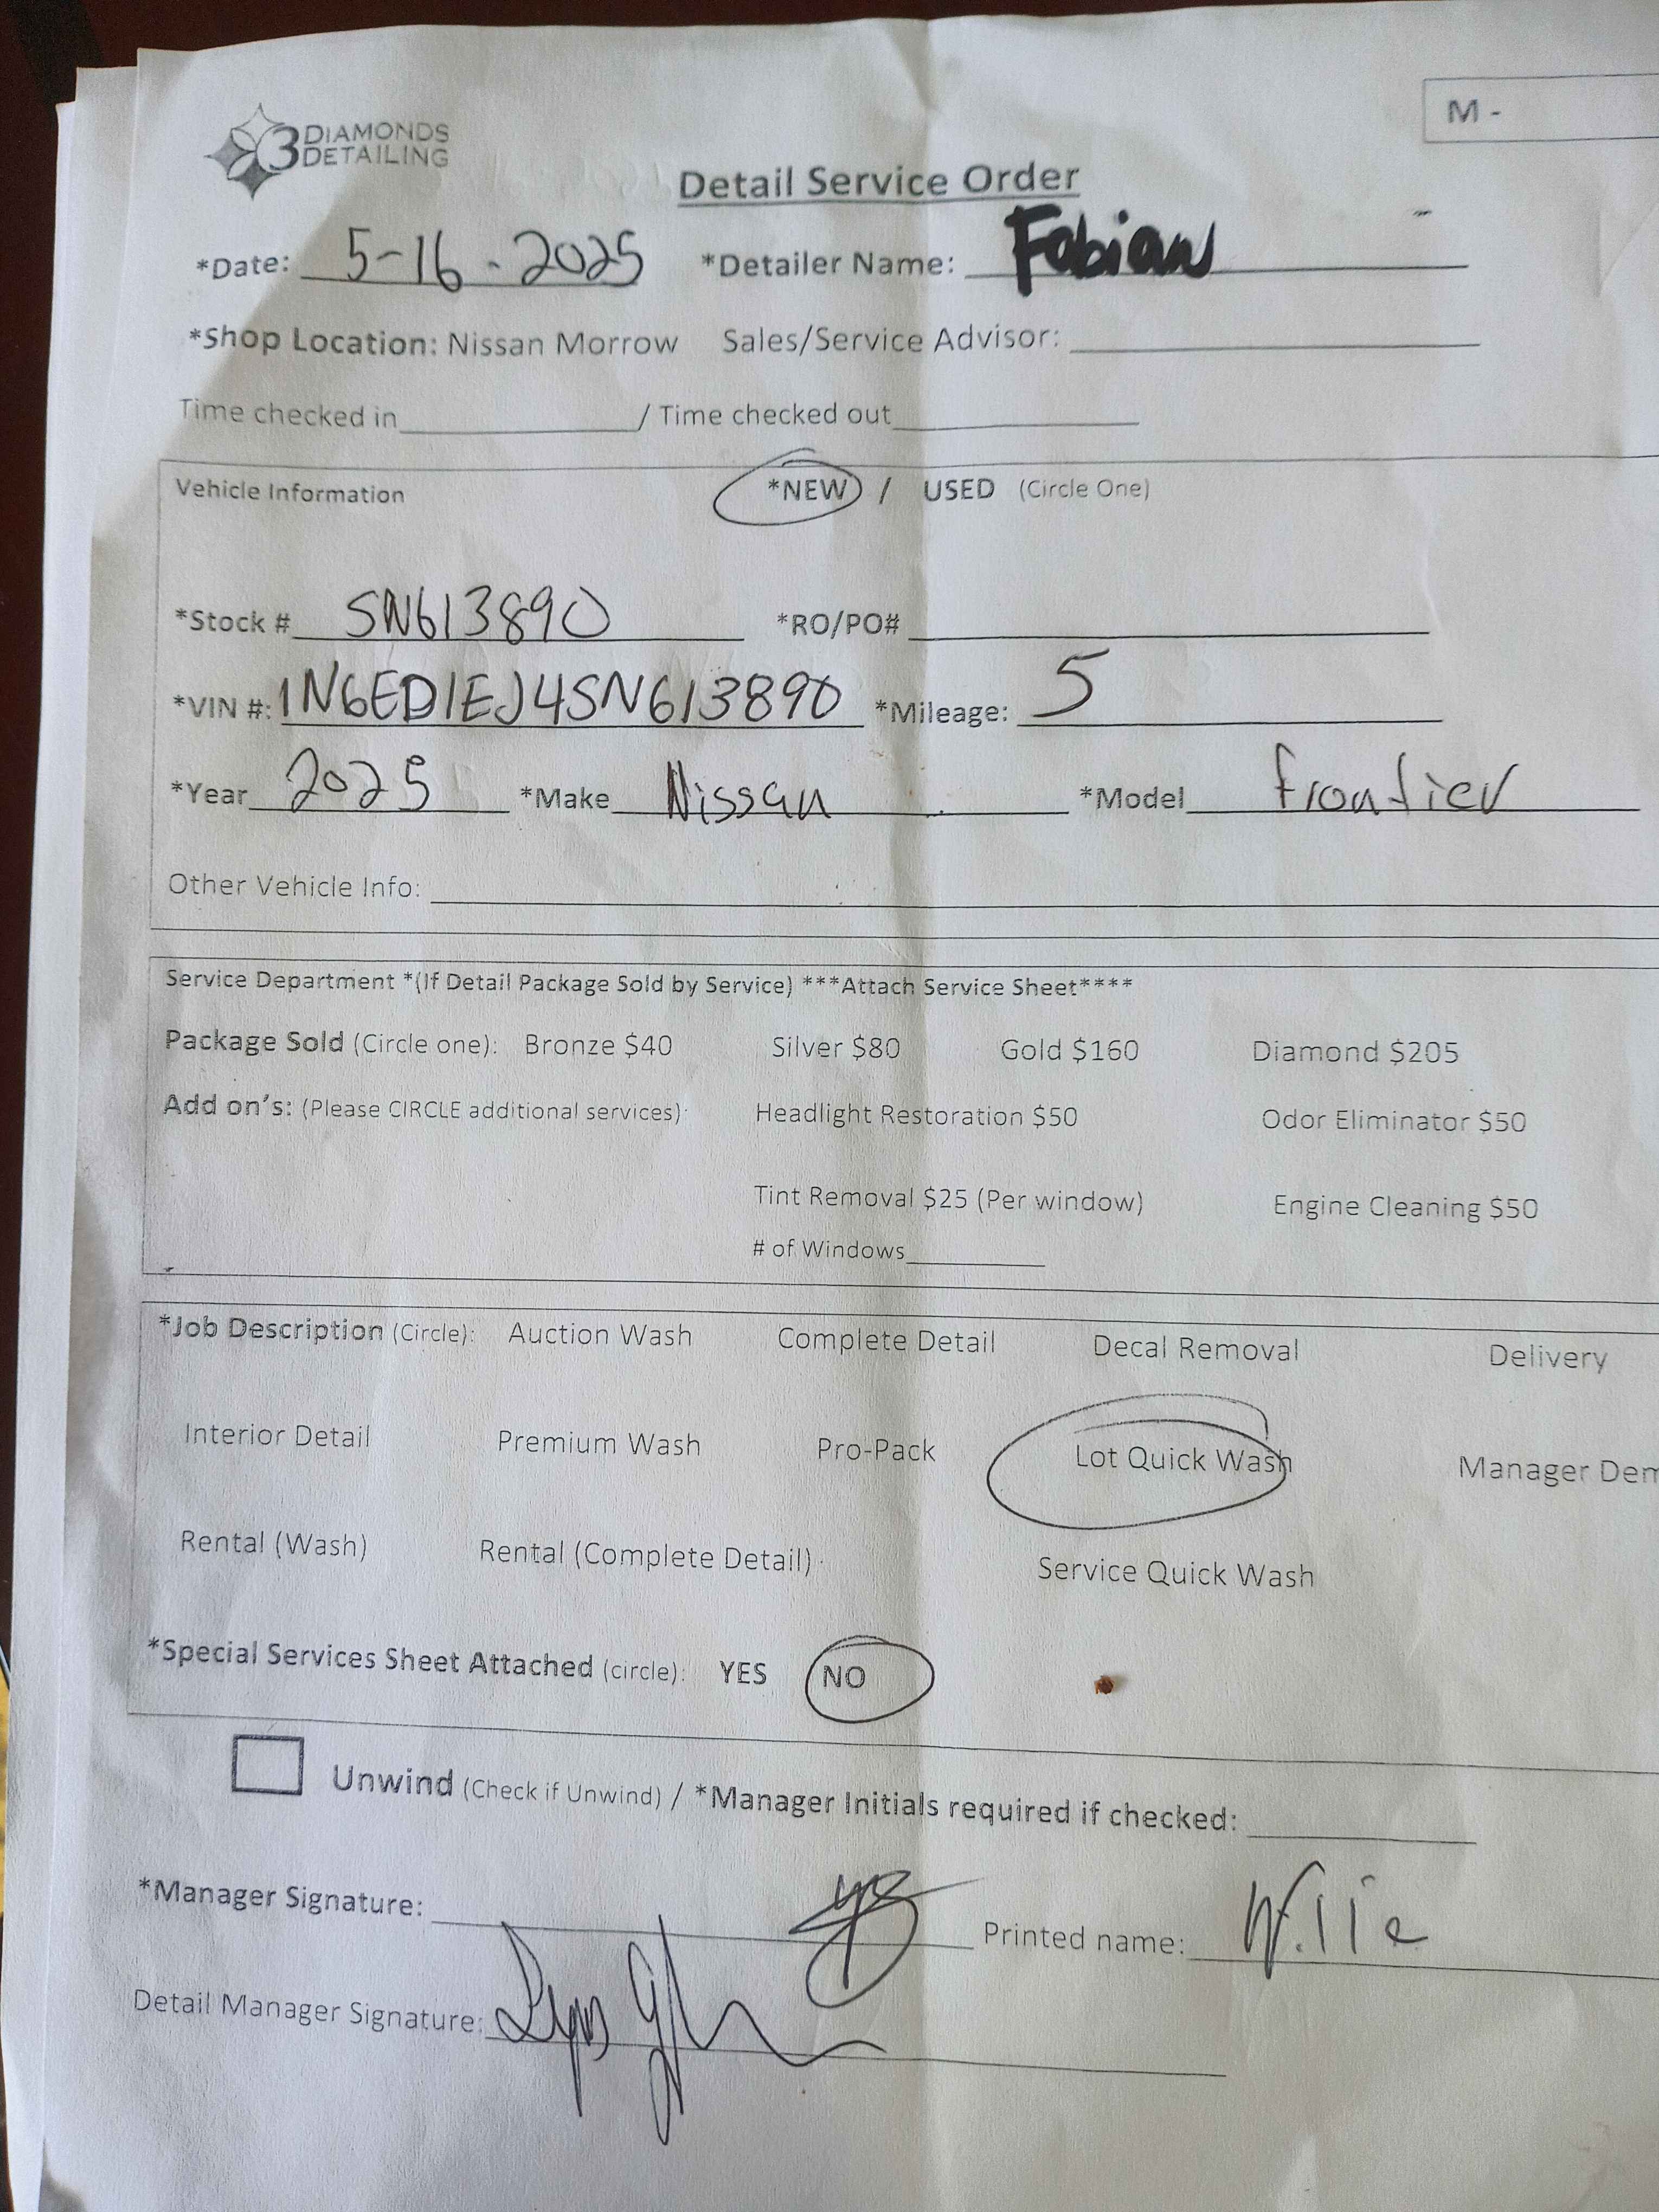 3 DIAMONDS
DETAILING
M -
Detail Service Order
*Date: 5-16-2025 *Detailer Name: Fabian
*Shop Location: Nissan Morrow Sales/Service Advisor:
Time checked in / Time checked out
Vehicle Information *NEW / USED (Circle One)
*Stock # SN613890 *RO/PO#
*VIN #: 1N6ED1EJ4SN613890 *Mileage: 5
*Year 2025 *Make Nissan *Model frontier
Other Vehicle Info:
Service Department *(If Detail Package Sold by Service) ***Attach Service Sheet****
Package Sold (Circle one): Bronze $40 Silver $80 Gold $160 Diamond $205
Add on's: (Please CIRCLE additional services): Headlight Restoration $50 Odor Eliminator $50
Tint Removal $25 (Per window) Engine Cleaning $50
# of Windows
*Job Description (Circle): Auction Wash Complete Detail Decal Removal Delivery
Interior Detail Premium Wash Pro-Pack Lot Quick Wash Manager Dem
Rental (Wash) Rental (Complete Detail) Service Quick Wash
*Special Services Sheet Attached (circle): YES NO
Unwind (Check if Unwind) / *Manager Initials required if checked:
*Manager Signature: Printed name: Willie
Detail Manager Signature: